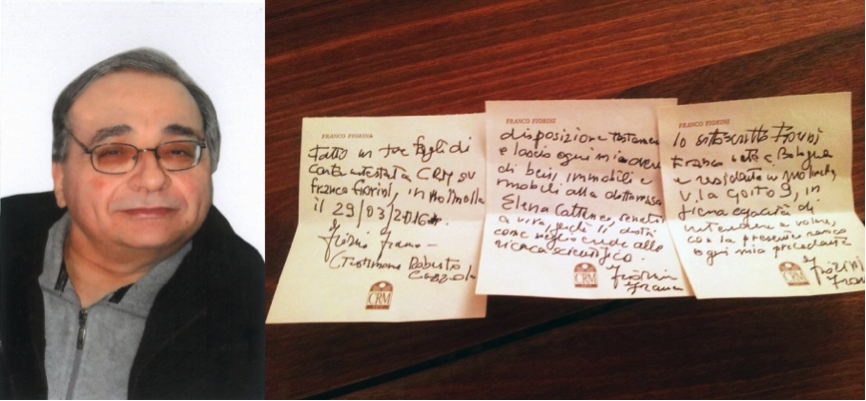 FRANCO FIORINI
Fatto in tre fogli di
carta intestata CRM su
Franco Fiorini, in Molinella
il 29/03/2016.
Fiorini Franco
Testimone Roberto
Cazzola
CRM
FRANCO FIORINI
disposizione testamen
e lascio ogni mio avere
di beni, immobili e
mobili alla dottoressa
Elena Cattaneo, senatri
a vita, perché li destini
come meglio crede alla
ricerca scientifica.
Fiorini
Franco
CRM
FRANCO FIORINI
Io sottoscritto Fiorini
Franco nato a Bologna
e residente in Molinella
V. la Goito 9, in
piena capacità di
intendere e volere,
con la presente revoco
ogni mia precedente
Fiorini
Fran
CRM